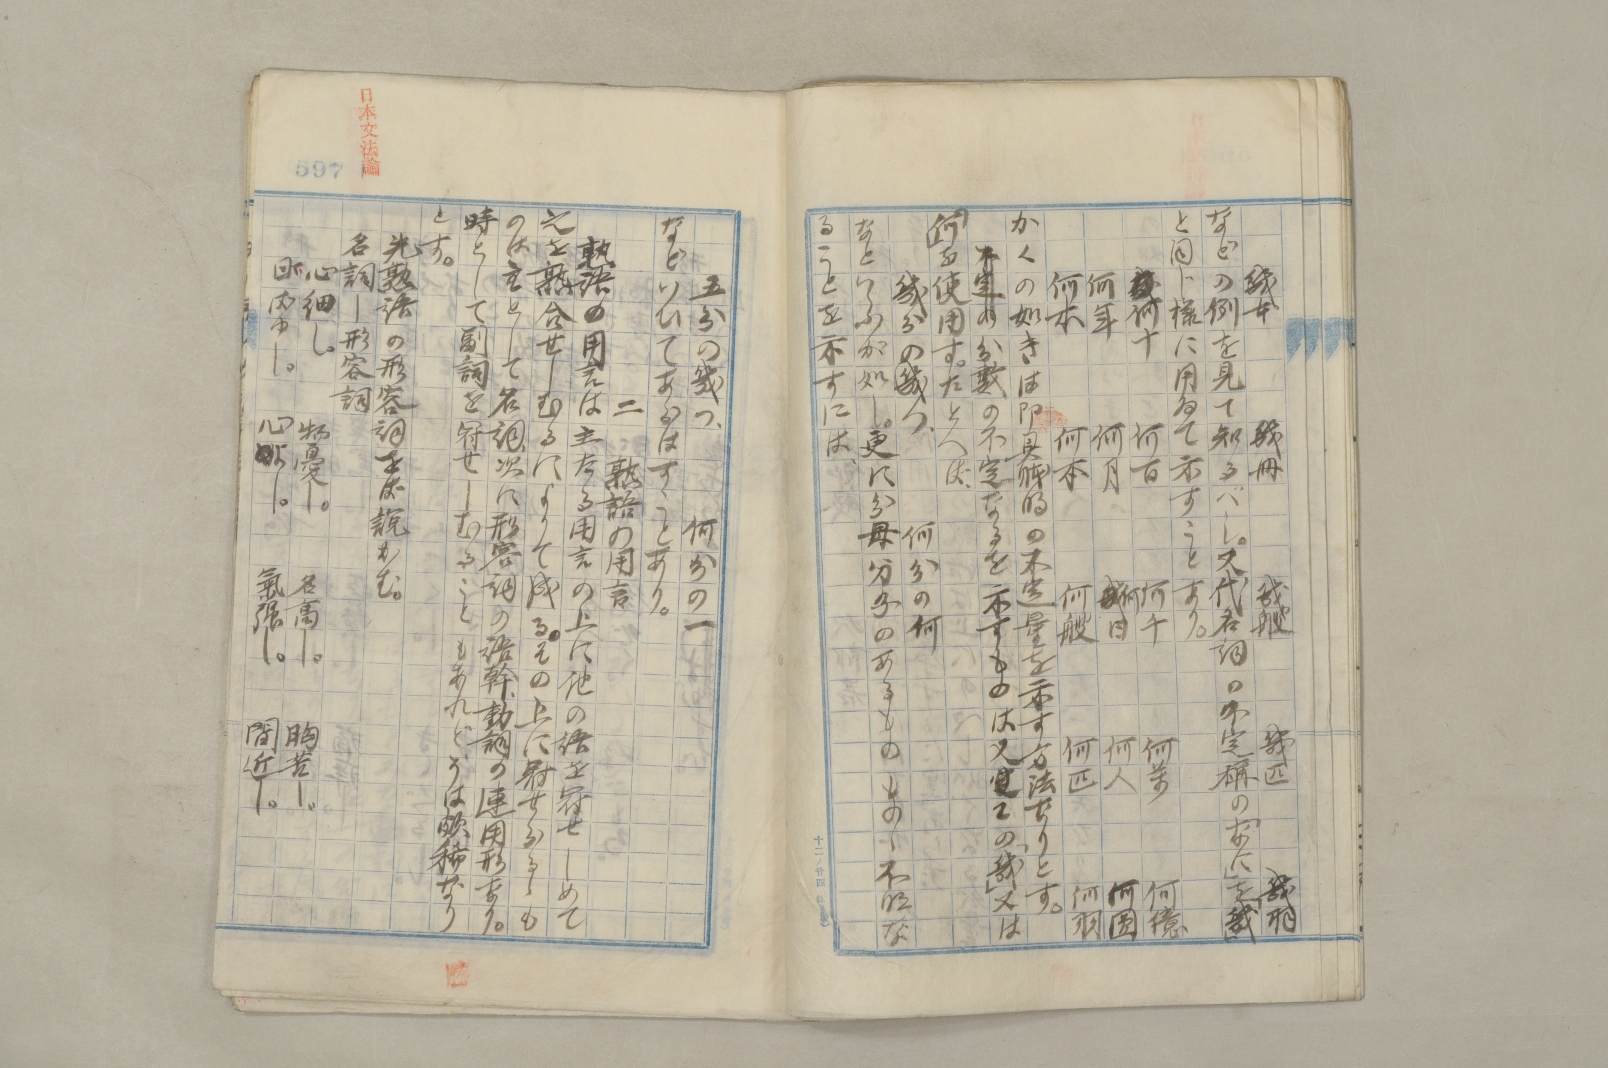 幾本　幾冊　幾艘　幾匹　幾羽
などの例を見て知るべし。又代名詞の不定稱の「なに」を「幾」
と同じ樣に用ゐて示すことあり。
何十　何百　何千　何萬　何億
何年　何月　何日　何人　何圓
何木　何本　何艘　何匹　何羽
かくの如きは即具躰的の不定量を示す方法なりとす。
不定の分數の不定なるを示すものは又上の「幾」又は
「何」を使用す。たとへば、
幾分の幾つ、　何分の何
なといふが如し。更に分母分子のあるものもの、不明な
ることを示すには、
五分の幾つ、　何分の一
などいひてあらはすことあり。
二　熟語の用言
熟語の用言は主なる用言の上に他の語を冠せしめて
之を熟合せしむるによりて成る。その上に冠せらるゝも
のは主として名詞、次に形容詞の語幹、動詞の連用形なり。
時として副詞を冠せしむることもあれどそは頗稀なり
とす。
先熟語の形容詞をば説かむ。
名詞―形容詞
心細し。　物憂し。　名高し。　胸苦し。
心　し。　氣強し。　間近し。
日本文法論
597